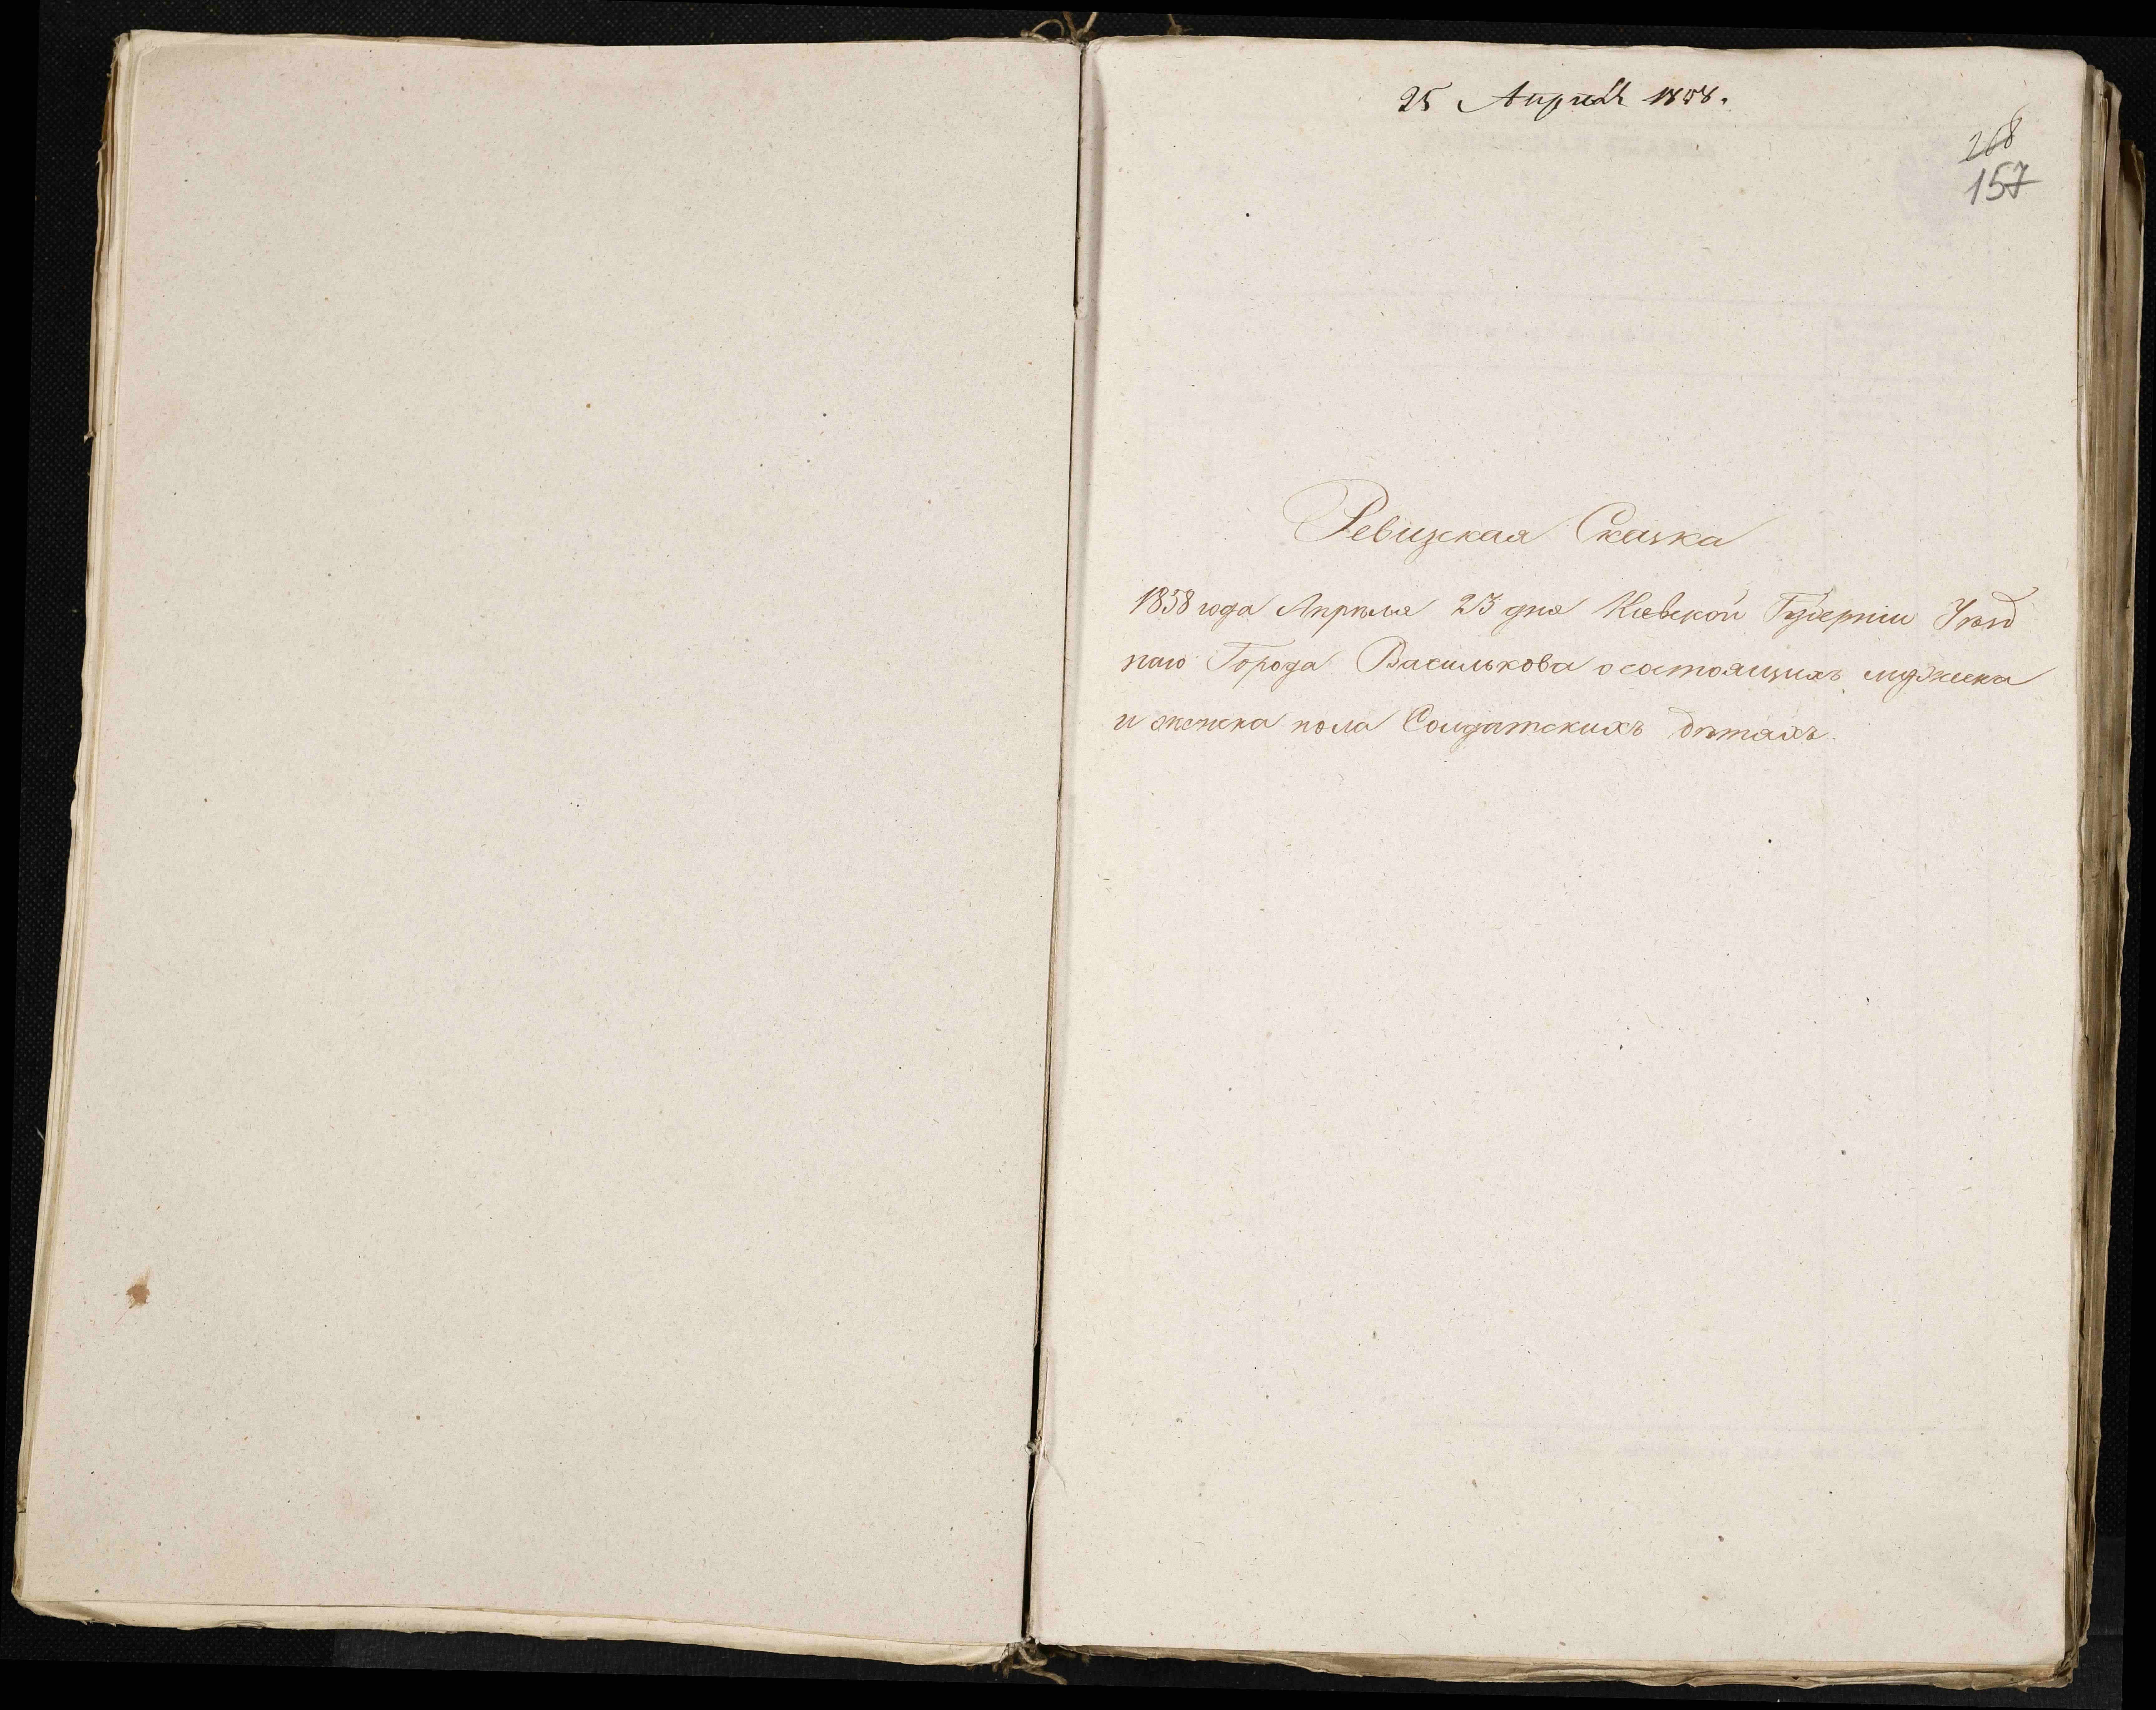 25 Апрѣля 1858.
268
157
Ревизская Сказка
1858 года Апрѣля 23 дня Кіевской Губерніи Уѣзд
наго Города Василькова о состоящихъ мужеска
и женска пола Солдатскихъ дѣтяхъ.